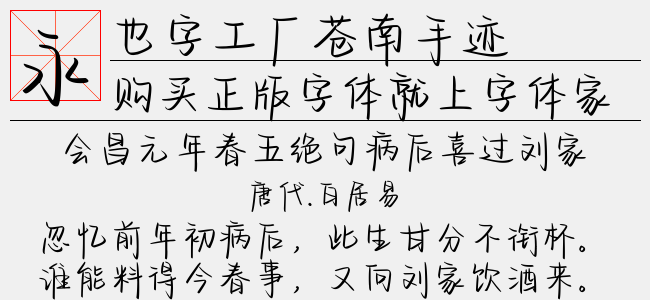 永
也字工厂苍南手迹
购买正版字体就上字体家
会昌元年春五绝句病后喜过刘家
唐代.白居易
忽忆前年初病后，此生甘分不衔杯。
谁能料得今春事，又向刘家饮酒来。